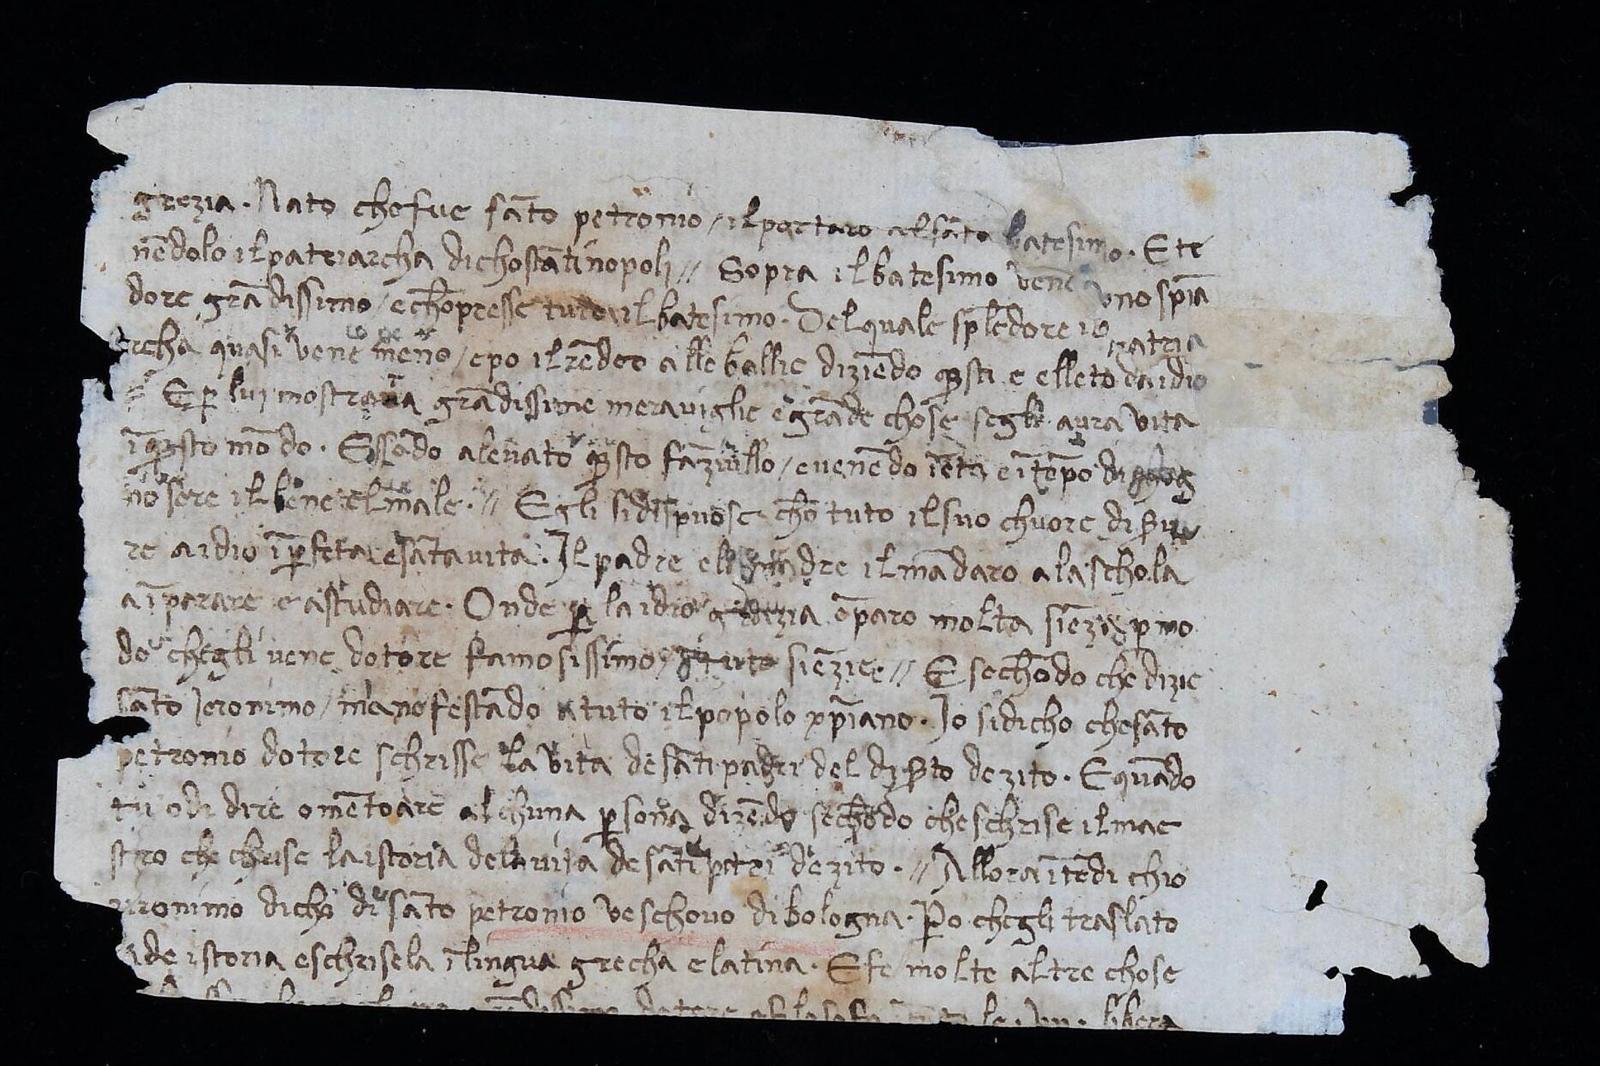 grezia. Nato che fue sāto petronio / il portaro al sāto batesimo. E te
nēdolo il patriarcha di chostātinopoli // Sopra il batesimo vene uno spiā
dore grādissimo / e chōpresse tuto il batesimo. Del quale splēdore il patria
rcha quasi vene meno / e po il rēdeo alle ballie diziēdo qsti e elleto da idio
// E p lui mostrava grādissime meraviglie e grāde chose segli avra vita
ī qsto mōdo. Essādo alevato qsto fāziullo / e venēdo ī eta e ī tēpo di
nosere il bene el male. // Egli si dispuose chō tuto il suo chuore di
re a idio ī pfeta e sāta vita. Il padre ella madre il mādaro a la schola
a īparare e a studiare. Onde p la idio grazia ēparo molta siēzia p mo
do chegli vene dotore famosissimo siēzie. // E sechōdo che dizie
sāto Jeronimo / manofestādo a tuto il popolo xpiano. Io si dicho che sāto
petronio dotore schrisse la vita de sāti padri del dezito. E quādo
tu odi dire o mētoare alchuna psona dizēdo sechōdo che schrise il mae
stro che chrise la istoria dela vita de sāti petri dezito. // Allora ītēdi chio
Jeronimo dicho di sāto petronio veschovo di bologna. Po chegli traslato
de istoria e schrisela ī lingua grecha e latina. E fe molte altre chose